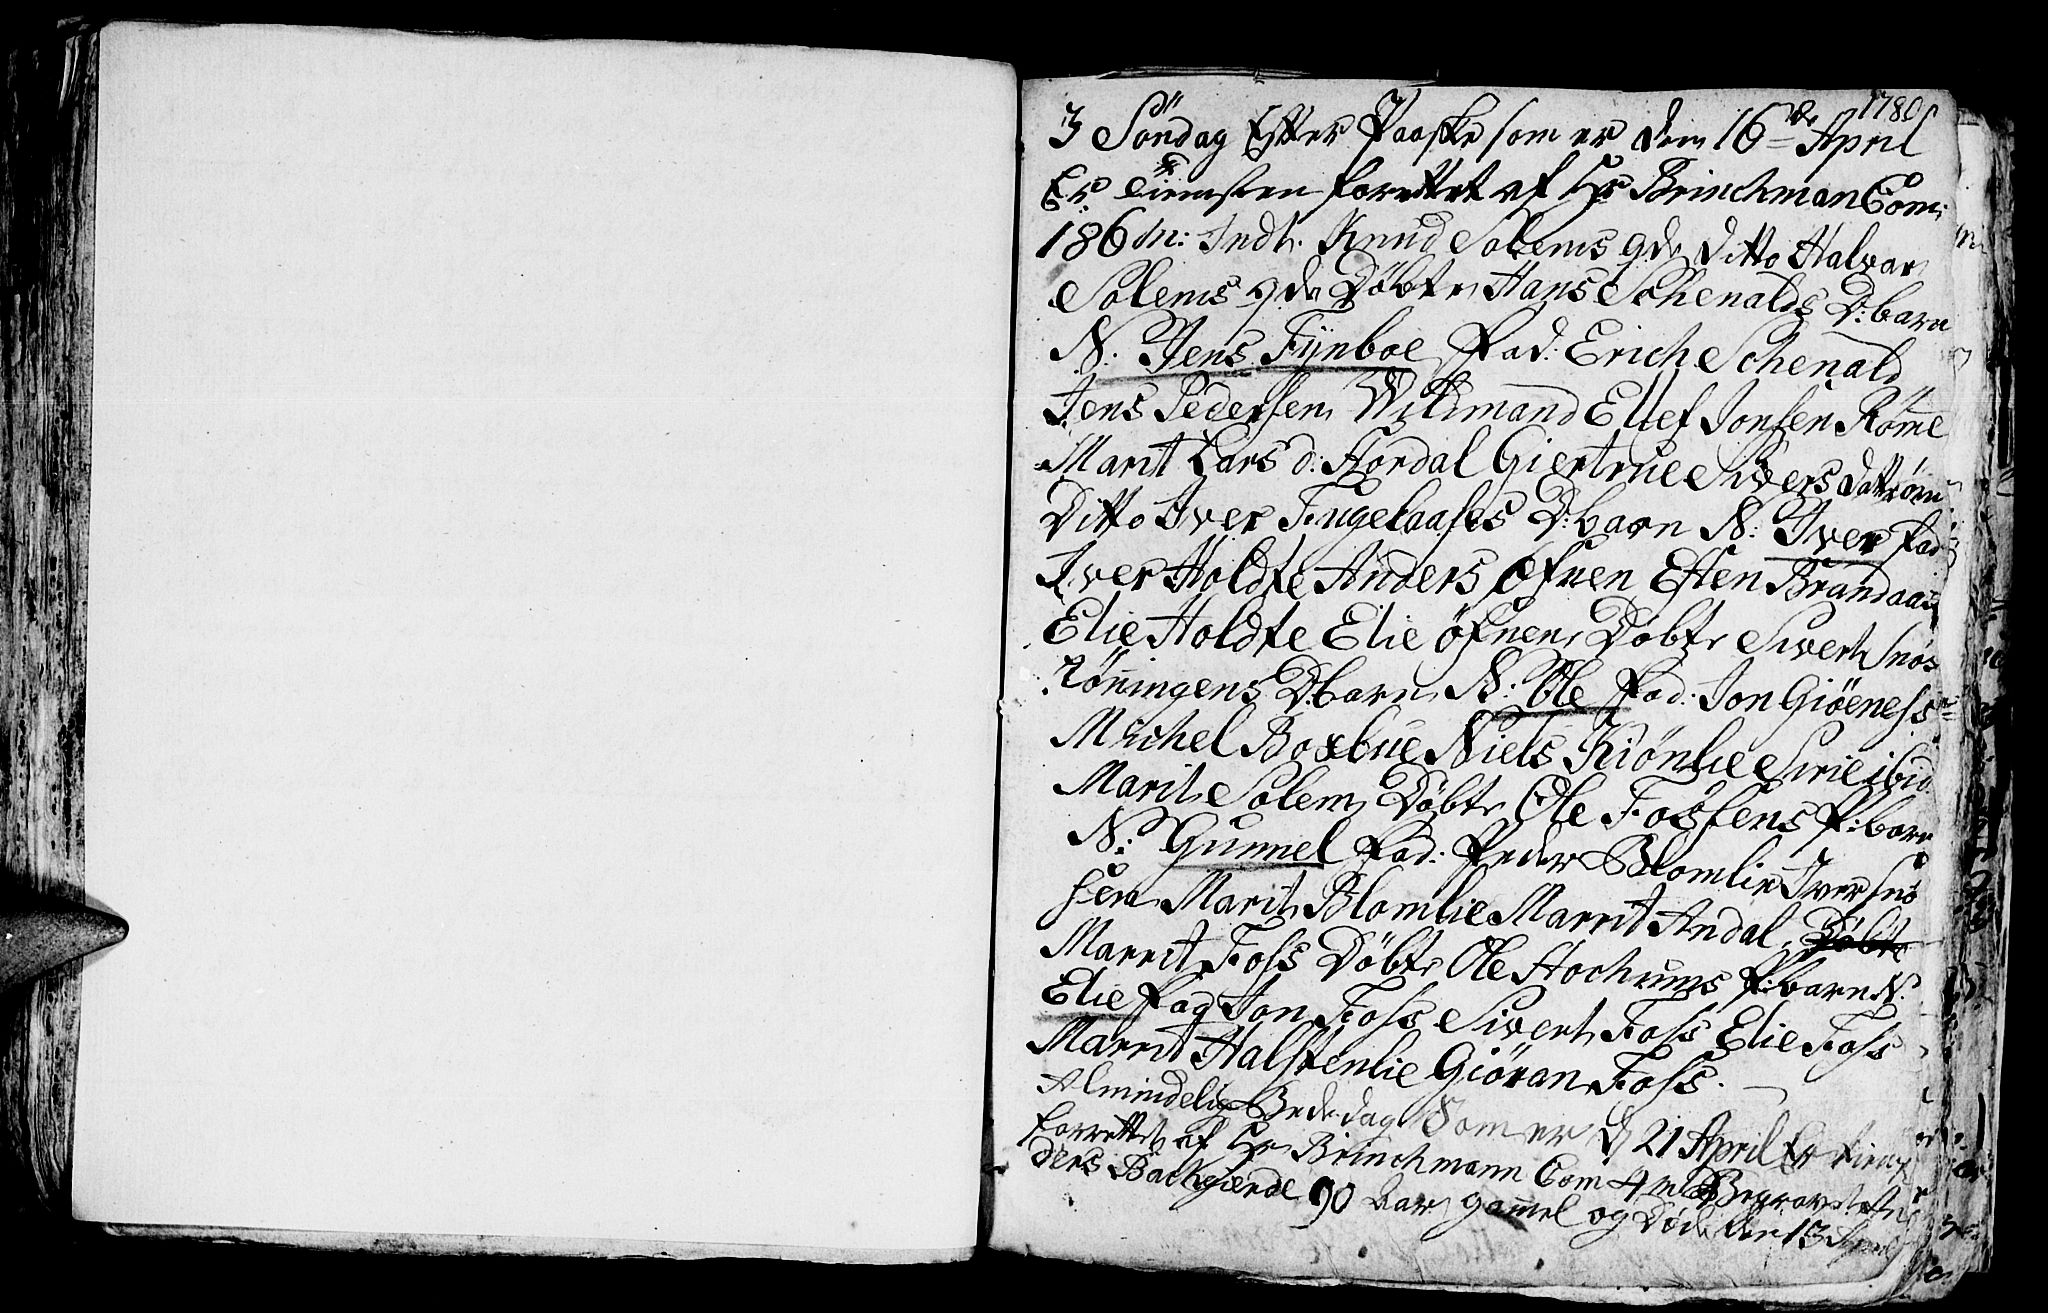 1780
3 Söndag Efter Paaske som er dem 16de April
Er Tienesten forrettet af Hr Brinchman Com:
186 M: Indt. Knud Solems qde Ditto Halvar
Solems qde Döbte Hans Schenalds D:barn
N. Jens Fijnboe fad: Erich Schenald
Jens Pedersen Wildmand Ellef Jonsen Röme
Marit Lars d: Hordal Giertrue Sivers datt röm
Ditto Iver Fugelaases D:barn N: Iver fad
Iver Holdte Anders Öfnen Esten Brandaas
Elie Holdte Elie öfnen Döbte Sivert Snos
Röningens D:barn N: Ole fad: Jon Giöeness
Michel Boxbue Niels Kiönlie Sirie ibid
Marit Solem Döbte Ole Fossens P:barn
N: Gunnel fad: Peder Blomlie Iver Snö
sen Marit Blomlie Marrit Andal Döbte
Marrit Foss Döbte Ole Hochungs P:barn N.
Elie fad Jon Foss Sivert Foss Elie Foss
Marrit Halstenlie Giöran Foss.
Almindelig Bededag Som er d 21 April Er tienes
forrettet af Hr Brinchmann Com 4 m Begravet An
ders Bachgierde 90 aar gammel og Döde den 13 April